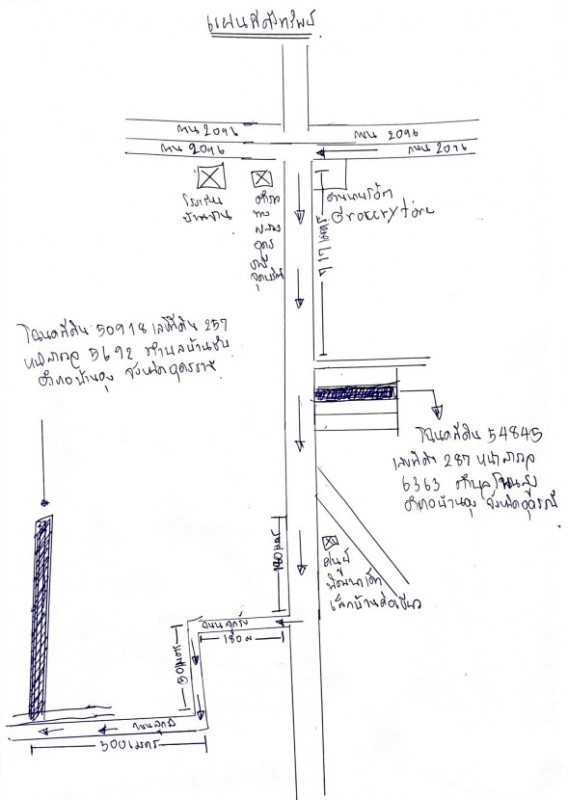 แผนที่ตั้งทรัพย์
ทล 2096
ทล 2096
ทล 2096
ทล 2096
โรงเรียน
ตำรวจ
ทาง
หลวง
อุดร
Grocery
717 เมตร
โฉนดที่ดิน 50918 เลขที่ดิน 257
หน้าสำรวจ 5692 ตำบลบ้านชัย
อำเภอบ้านดุง จังหวัดอุดรธานี
โฉนดที่ดิน 54845
เลขที่ดิน 287 หน้าสำรวจ
6363 ตำบลโพนสูง
อำเภอบ้านดุง จังหวัดอุดรธานี
180 เมตร
ศูนย์
พัฒนาเด็ก
เล็กบ้าน
ถนนลูกรัง
150 ม
60 เมตร
ถนนลูกรัง
300 เมตร